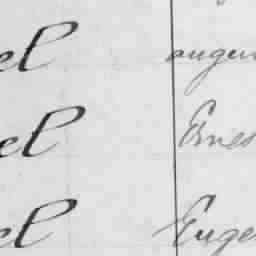 el augu
el Ernes
el Euge